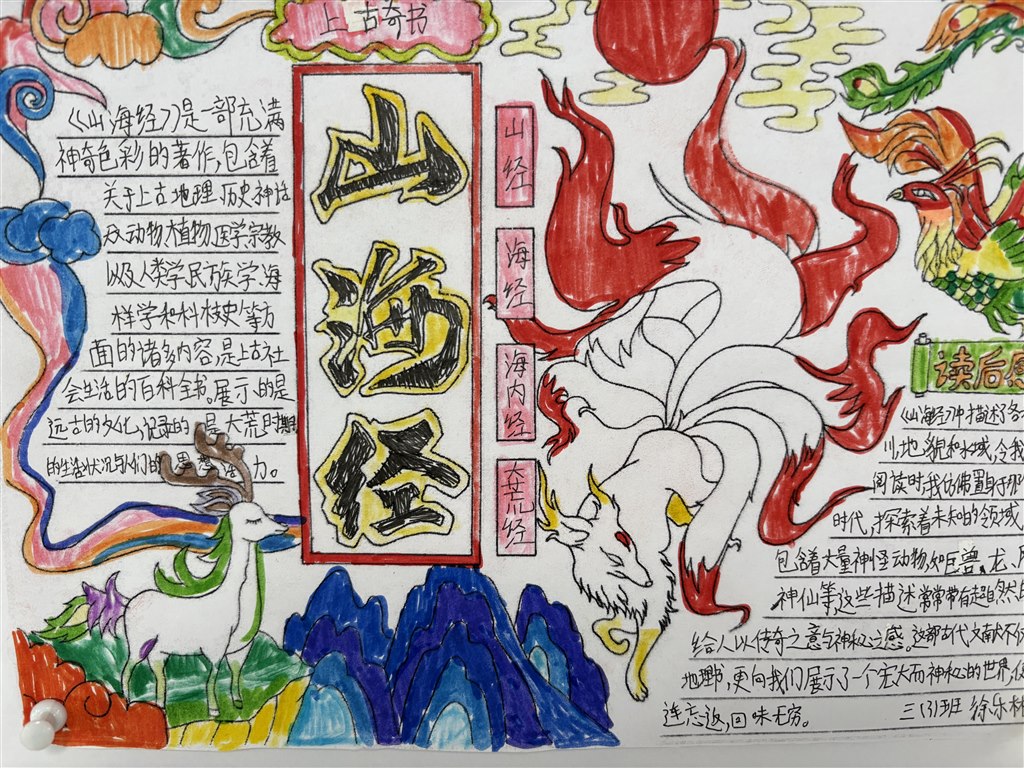 上古奇书
《山海经》是一部充满
神奇色彩的著作,包含着
关于上古地理、历史神话
及动物、植物、医学宗教
以及人类学民族学、海
样学和科技史等方
面的诸多内容,是上古社
会生活的百科全书。展示的是
远古的文化,记录的是大荒时期
的生活状况与人们的思想活力。
山海经
山经
海经
海内经
大荒经
读后感
《山海经》中描述了各
川、地貌和水域,令我
阅读时我仿佛置身于那
时代,探索着未知的领域
包含着大量神怪动物,如巨兽、龙、
神仙等,这些描述常常带有超自然
给人以传奇之意与神秘之感。这部古代文献不仅
地理书,更向我们展示了一个宏大而神秘的世界,
连忘返,回味无穷。
三(3)班 徐乐